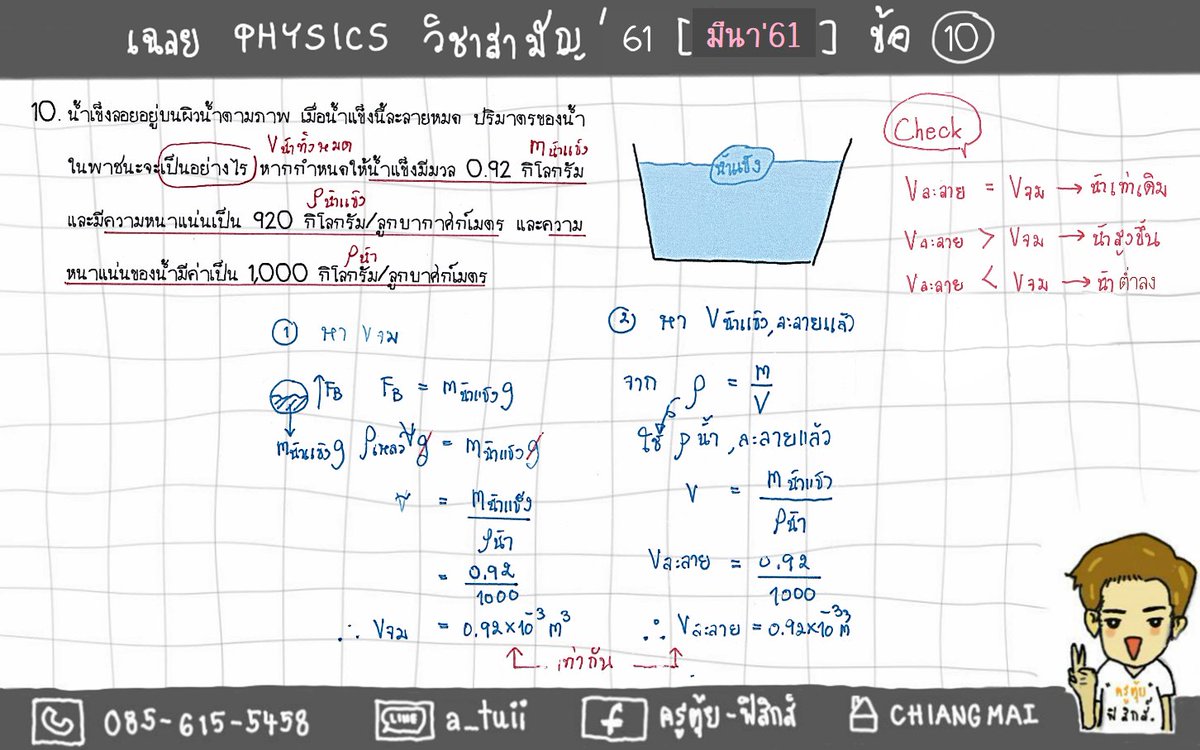 เฉลย PHYSICS วิชาสามัญ' 61 [ มีนา'61 ] ข้อ 10
10. น้ำแข็งลอยอยู่บนผิวน้ำตามภาพ เมื่อน้ำแข็งนี้ละลายหมด ปริมาตรของน้ำ
V น้ำทั้งหมด
m น้ำแข็ง
ในพาชนะจะเป็นอย่างไร หากกำหนดให้น้ำแข็งมีมวล 0.92 กิโลกรัม
ρ น้ำแข็ง
และมีความหนาแน่นเป็น 920 กิโลกรัม/ลูกบากาศก์เมตร และความ
ρ น้ำ
หนาแน่นของน้ำมีค่าเป็น 1,000 กิโลกรัม/ลูกบาศก์เมตร
น้ำแข็ง
Check
V ละลาย = V จม → น้ำเท่าเดิม
V ละลาย > V จม → น้ำสูงขึ้น
V ละลาย < V จม → น้ำต่ำลง
① หา V จม
F_B F_B = m น้ำแข็ง g
m น้ำแข็ง g ρ เหลว V g = m น้ำแข็ง g
V = m น้ำแข็ง / ρ น้ำ
= 0.92 / 1000
∴ V จม = 0.92×10⁻³ m³
② หา V น้ำแข็ง,ละลายแล้ว
จาก ρ = m / V
ใช้ ρ น้ำ ,ละลายแล้ว
V = m น้ำแข็ง / ρ น้ำ
V ละลาย = 0.92 / 1000
∴ V ละลาย = 0.92×10⁻³ m³
เท่ากัน
ครูตุ้ย
ฟิสิกส์.
085-615-5458 LINE a_tuii f ครูตุ้ย-ฟิสิกส์ CHIANGMAI